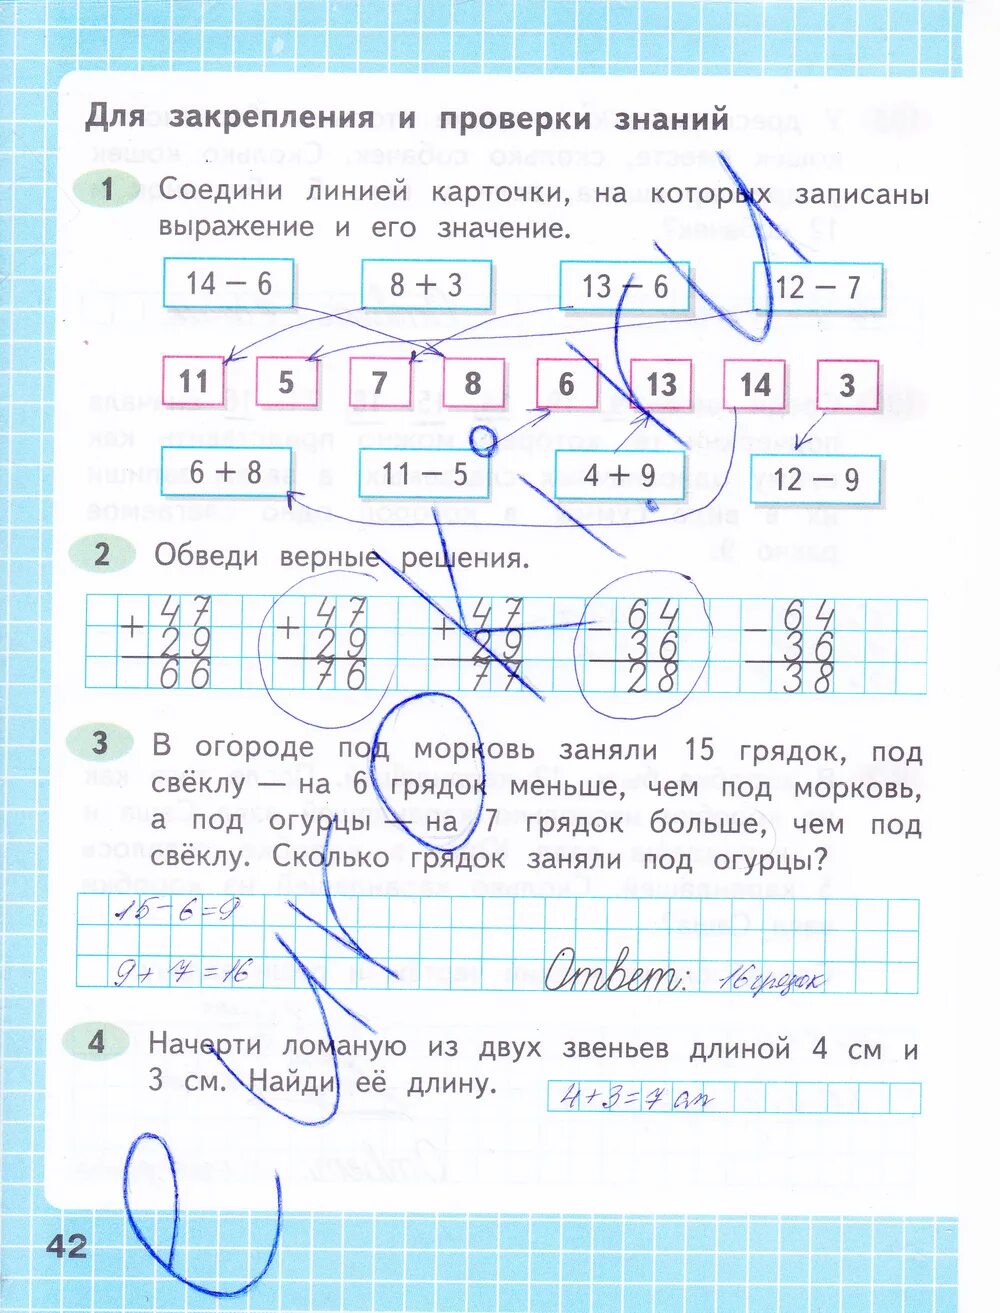 Для закрепления и проверки знаний
1 Соедини линией карточки, на которых записаны
выражение и его значение.
14 − 6 8 + 3 13 − 6 12 − 7
11 5 7 8 6 13 14 3
6 + 8 11 − 5 4 + 9 12 − 9
2 Обведи верные решения.
47 47 47 64 64
+ + + − −
29 29 29 36 36
66 76 77 28 38
3 В огороде под морковь заняли 15 грядок, под
свёклу — на 6 грядок меньше, чем под морковь,
а под огурцы — на 7 грядок больше, чем под
свёклу. Сколько грядок заняли под огурцы?
15−6=9
9+7=16 Ответ: 16 грядок
4 Начерти ломаную из двух звеньев длиной 4 см и
3 см. Найди её длину. 4+3=7 см
42